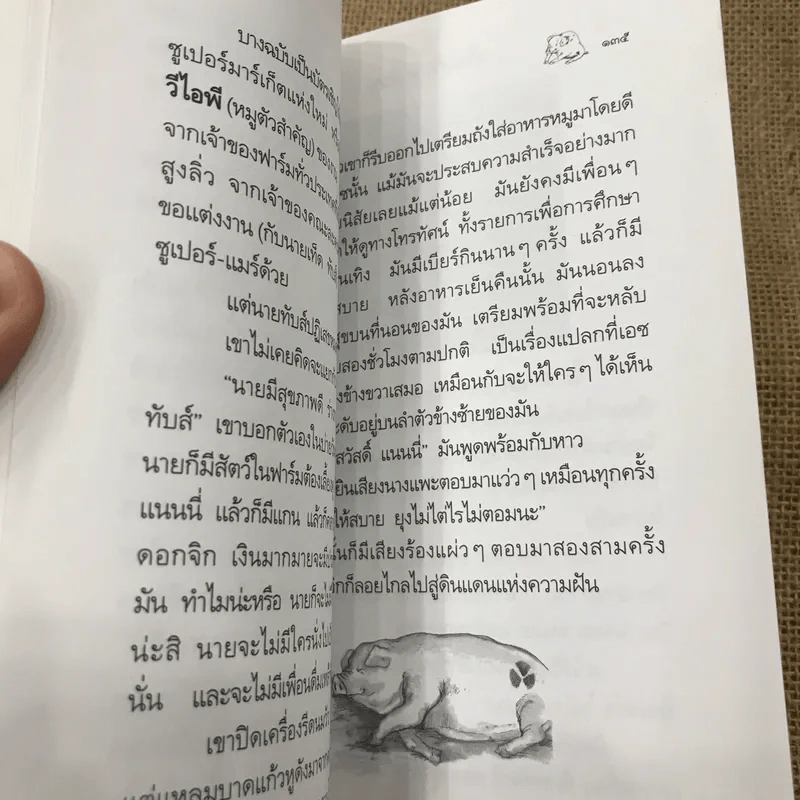 บางฉบับเป็นบัตรเชิญ
ซูเปอร์มาร์เก็ตแห่งใหม่
วีไอพี (หมูตัวสำคัญ) ของงาน
จากเจ้าของฟาร์มทั่วประเทศ
สูงลิ่ว จากเจ้าของคณะละคร
ขอแต่งงาน (กับนายเท็ด ทับส์
ซูเปอร์-แมร์ด้วย
แต่นายทับส์ปฏิเสธ
เขาไม่เคยคิดจะแยก
“นายมีสุขภาพดี
ทับส์” เขาบอกตัวเองใน
นายก็มีสัตว์ในฟาร์มต้องเลี้ยง
แนนนี่ แล้วก็มีแกน แล้วก็
ดอกจิก เงินมากมายจะมี
มัน ทำไมน่ะหรือ นายก็จะไม่
น่ะสิ นายจะไม่มีใครนั่ง
นั่น และจะไม่มีเพื่อนดื่ม
เขาปิดเครื่องรีดนม
แต่แหลมบาดแก้วหูดังมาจาก
๑๓๕
วเขาก็รีบออกไปเตรียมถังใส่อาหารหมูมาโดยดี
ซนั้น แม้มันจะประสบความสำเร็จอย่างมาก
นิสัยเลยแม้แต่น้อย มันยังคงมีเพื่อนๆ
ให้ดูทางโทรทัศน์ ทั้งรายการเพื่อการศึกษา
นเทิง มันมีเบียร์กินนานๆ ครั้ง แล้วก็มี
สบาย หลังอาหารเย็นคืนนั้น มันนอนลง
ขบนที่นอนของมัน เตรียมพร้อมที่จะหลับ
สองชั่วโมงตามปกติ เป็นเรื่องแปลกที่เอซ
ข้างขวาเสมอ เหมือนกับจะให้ใครๆ ได้เห็น
ะดับอยู่บนลำตัวข้างซ้ายของมัน
สวัสดิ์ แนนนี่” มันพูดพร้อมกับหาว
ยินเสียงนางแพะตอบมาแว่วๆ เหมือนทุกครั้ง
ให้สบาย ยุงไม่ไต่ไรไม่ตอมนะ”
นก็มีเสียงร้องแผ่วๆ ตอบมาสองสามครั้ง
กก็ลอยไกลไปสู่ดินแดนแห่งความฝัน